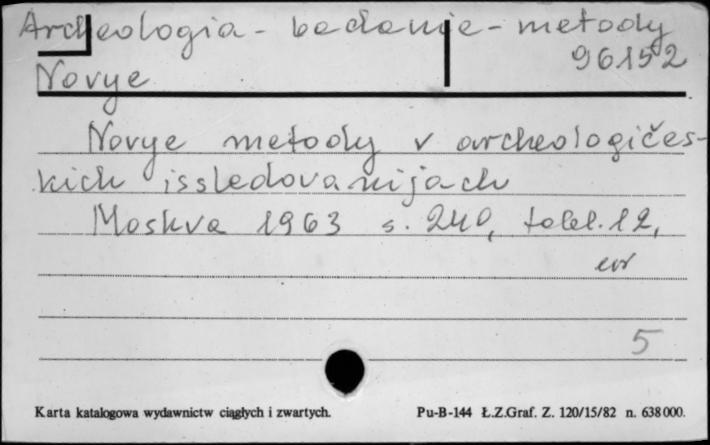 Archeologia - badanie - metody
96152
Novye
Novye metody v archeologičes-
kich issledovanijach
Moskva 1963 s. 240, tabl. 12,
5
Karta katalogowa wydawnictw ciągłych i zwartych. Pu-B-144 Ł.Z.Graf. Z. 120/15/82 n. 638000.